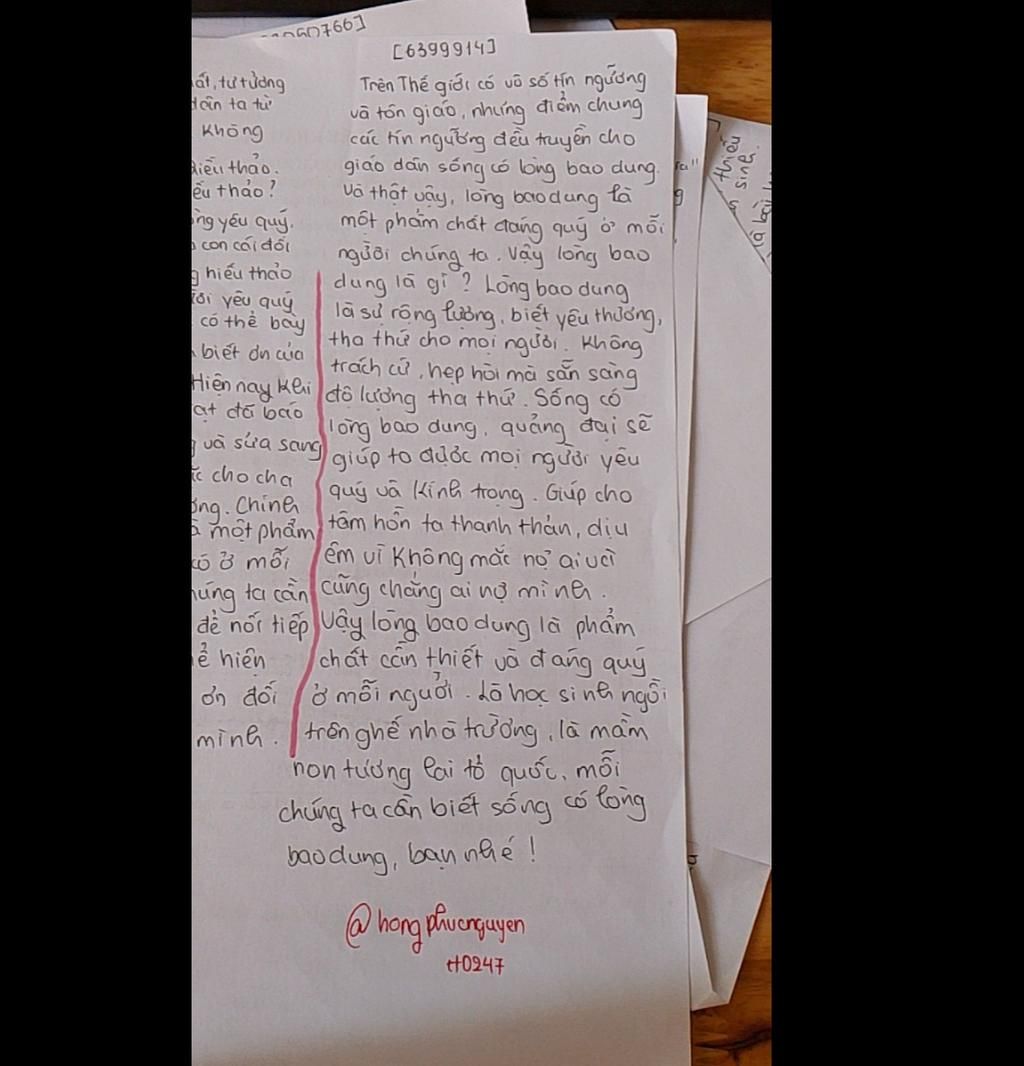 60766]
[6399914]
ất, tư tưởng
dân ta từ
Không
hiếu thảo.
ếu thảo?
ng yêu quý.
con cái đối
g hiếu thảo
ời yêu quý
có thể bày
biết ơn của
Hiện nay khi
ạt đã báo
và sửa sang
ốc cho cha
ơng. Chính
à một phẩm
có ở mỗi
húng ta cần
để nối tiếp
ể hiện
ơn đối
mình.
Trên Thế giới có vô số tín ngưỡng
và tôn giáo, nhưng điểm chung
các tín ngưỡng đều truyền cho
giáo dân sống có lòng bao dung.
Và thật vậy, lòng bao dung là
một phẩm chất đáng quý ở mỗi
người chúng ta. Vậy lòng bao
dung là gì? Lòng bao dung
là sự rộng lượng, biết yêu thương,
tha thứ cho mọi người. Không
trách cứ, hẹp hòi mà sẵn sàng
độ lượng tha thứ. Sống có
lòng bao dung, quảng đại sẽ
giúp ta được mọi người yêu
quý và kính trọng. Giúp cho
tâm hồn ta thanh thản, dịu
êm vì không mắc nợ ai và
cũng chẳng ai nợ mình.
Vậy lòng bao dung là phẩm
chất cần thiết và đáng quý
ở mỗi người. Là học sinh ngồi
trên ghế nhà trường, là mầm
non tương lai tổ quốc, mỗi
chúng ta cần biết sống có lòng
bao dung, bạn nhé!
@hongphucnguyen
H0247
thiếu
sinh.